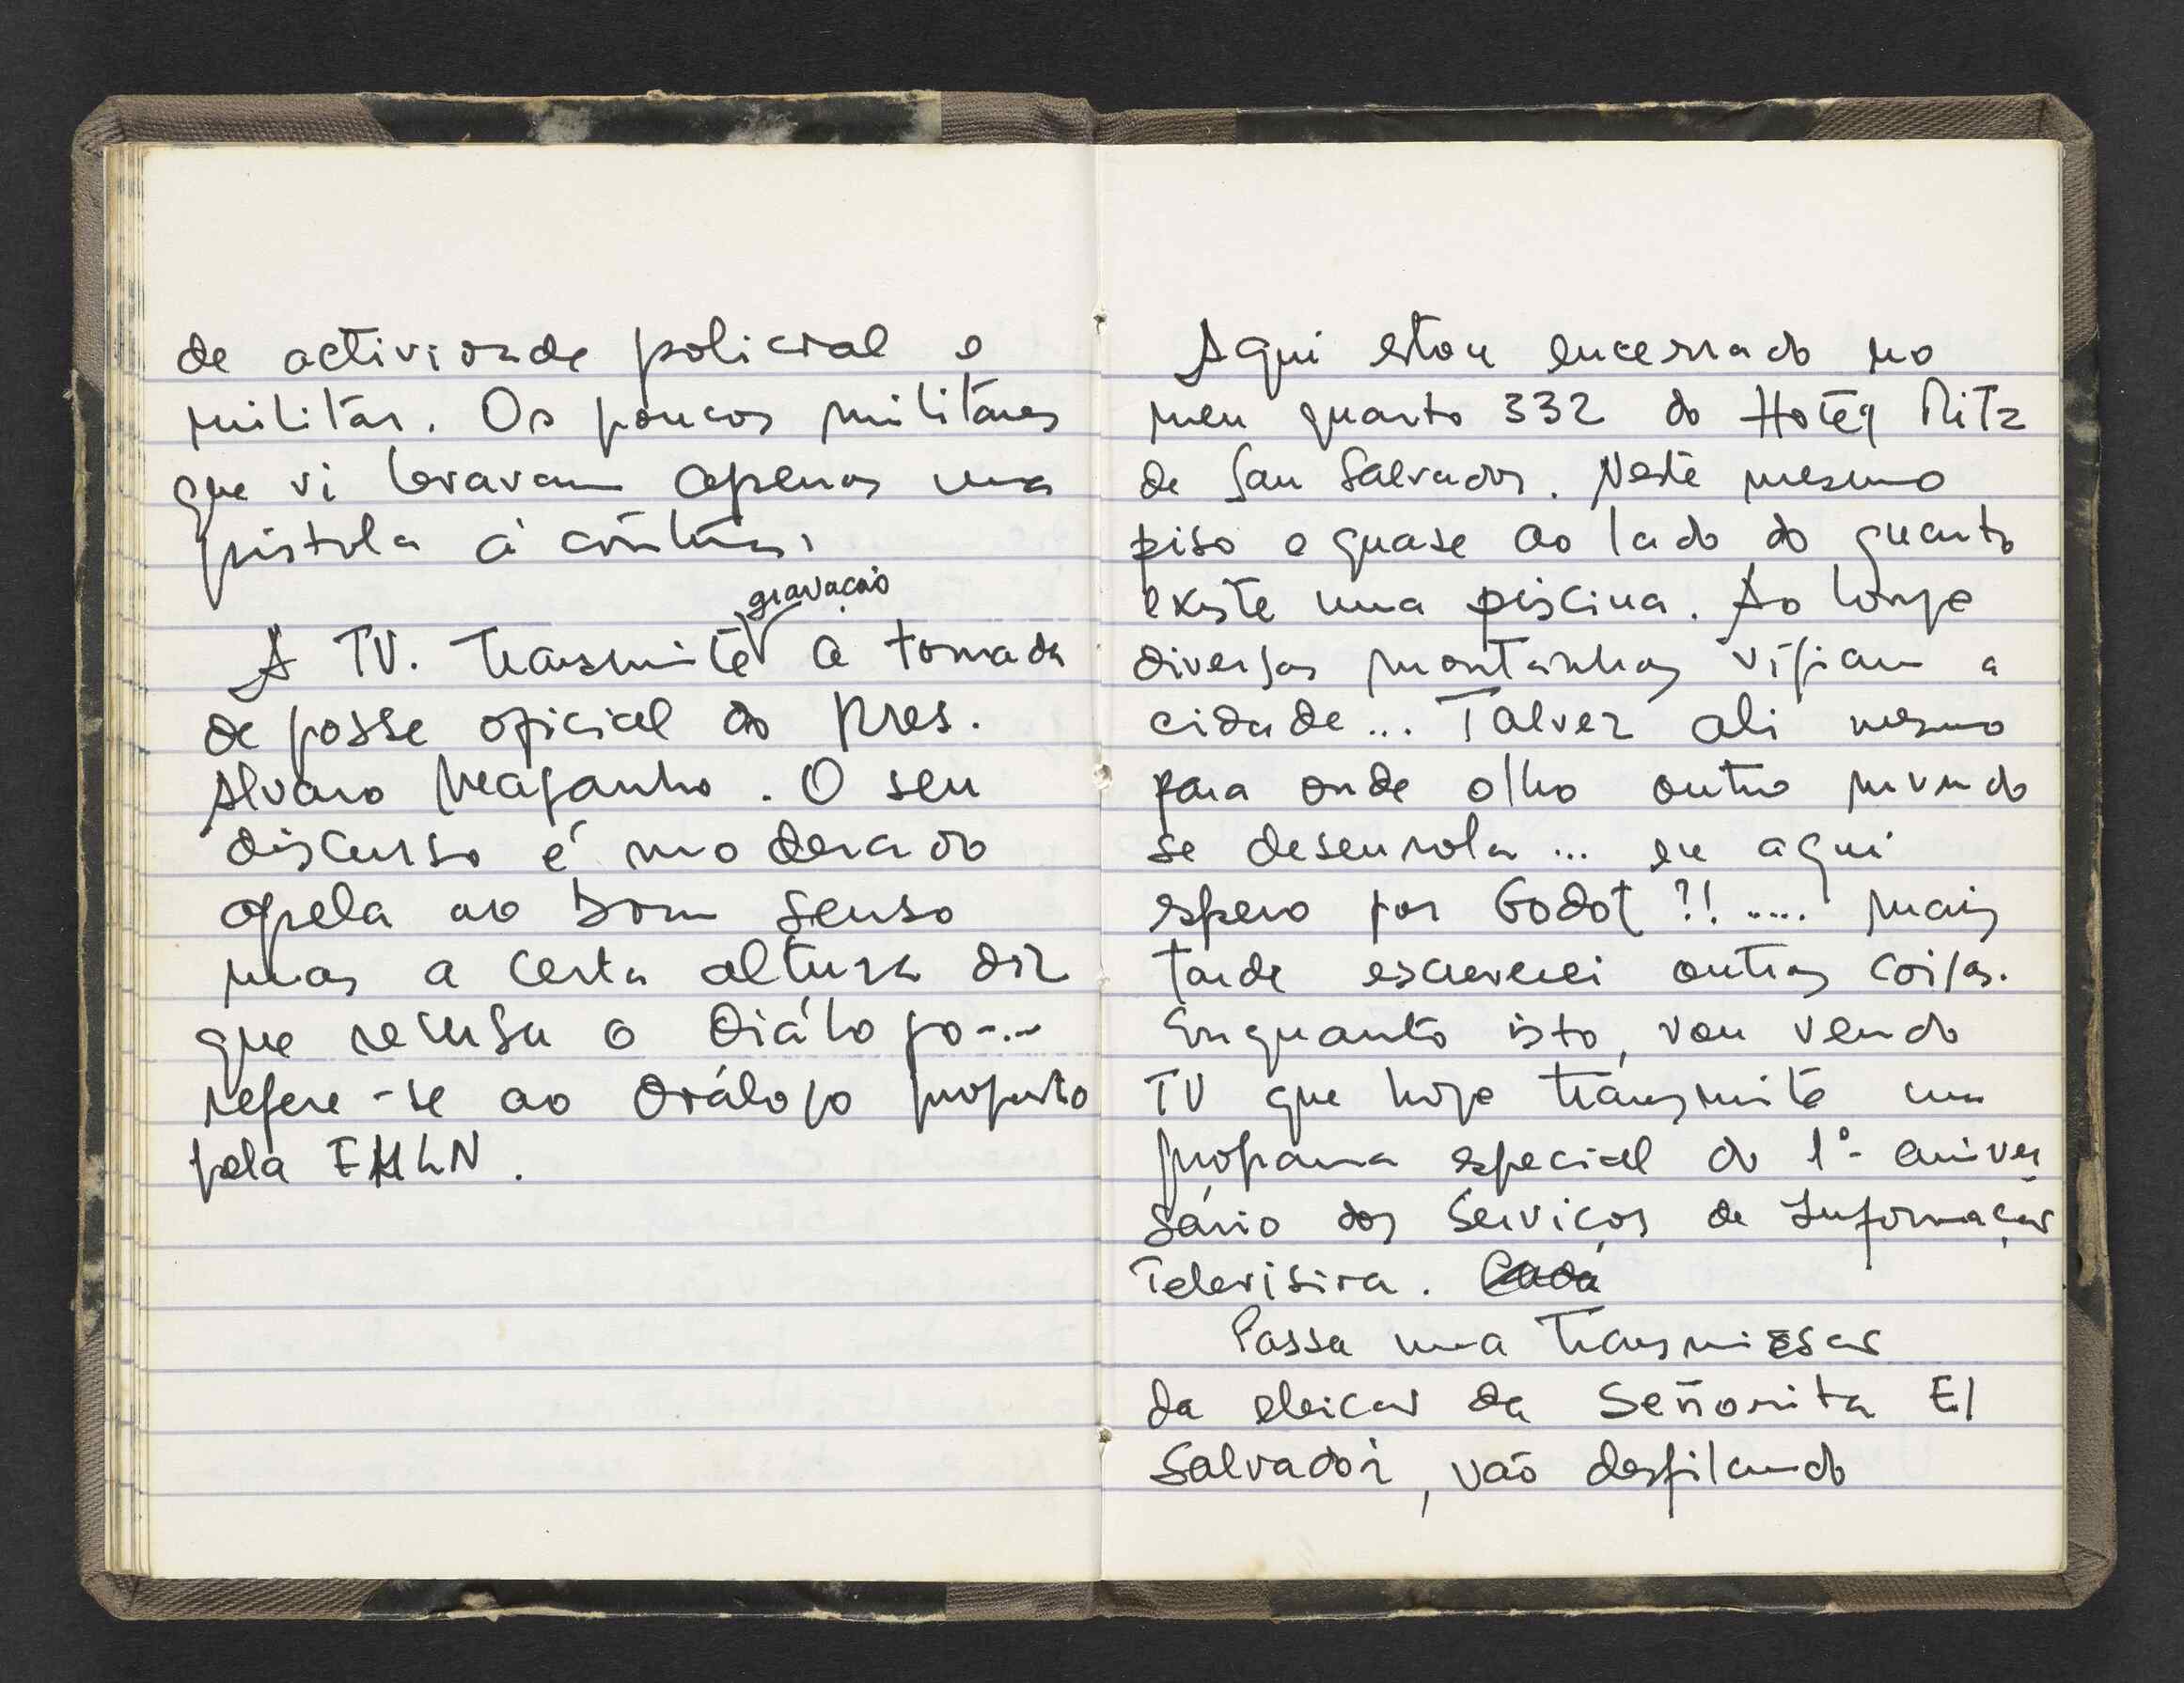 de actividade policial e
militar. Os poucos militares
que vi levavam apenas uma
pistola à cintura.
gravação
A TV. transmite a tomada
de posse oficial do Pres.
Alvaro Maganho. O seu
discurso é moderado
apela ao bom senso
mas a certa altura diz
que recusa o diálogo...
refere-se ao diálogo proposto
pela FMLN.
Aqui estou encerrado no
meu quarto 332 do Hotel Ritz
de San Salvador. Neste mesmo
piso e quase ao lado do quarto
existe uma piscina. Ao longe
diversas montanhas vigiam a
cidade... Talvez ali mesmo
para onde olho outro mundo
se desenrola... eu aqui
espero por Godot ?!..... mais
tarde escreverei outras coisas.
Enquanto isto, vou vendo
TV que hoje transmite um
programa especial do 1º aniver
sário dos Serviços de Informação
Televisiva. Cada
Passa uma transmissão
da eleição da Señorita El
Salvador, vão desfilando